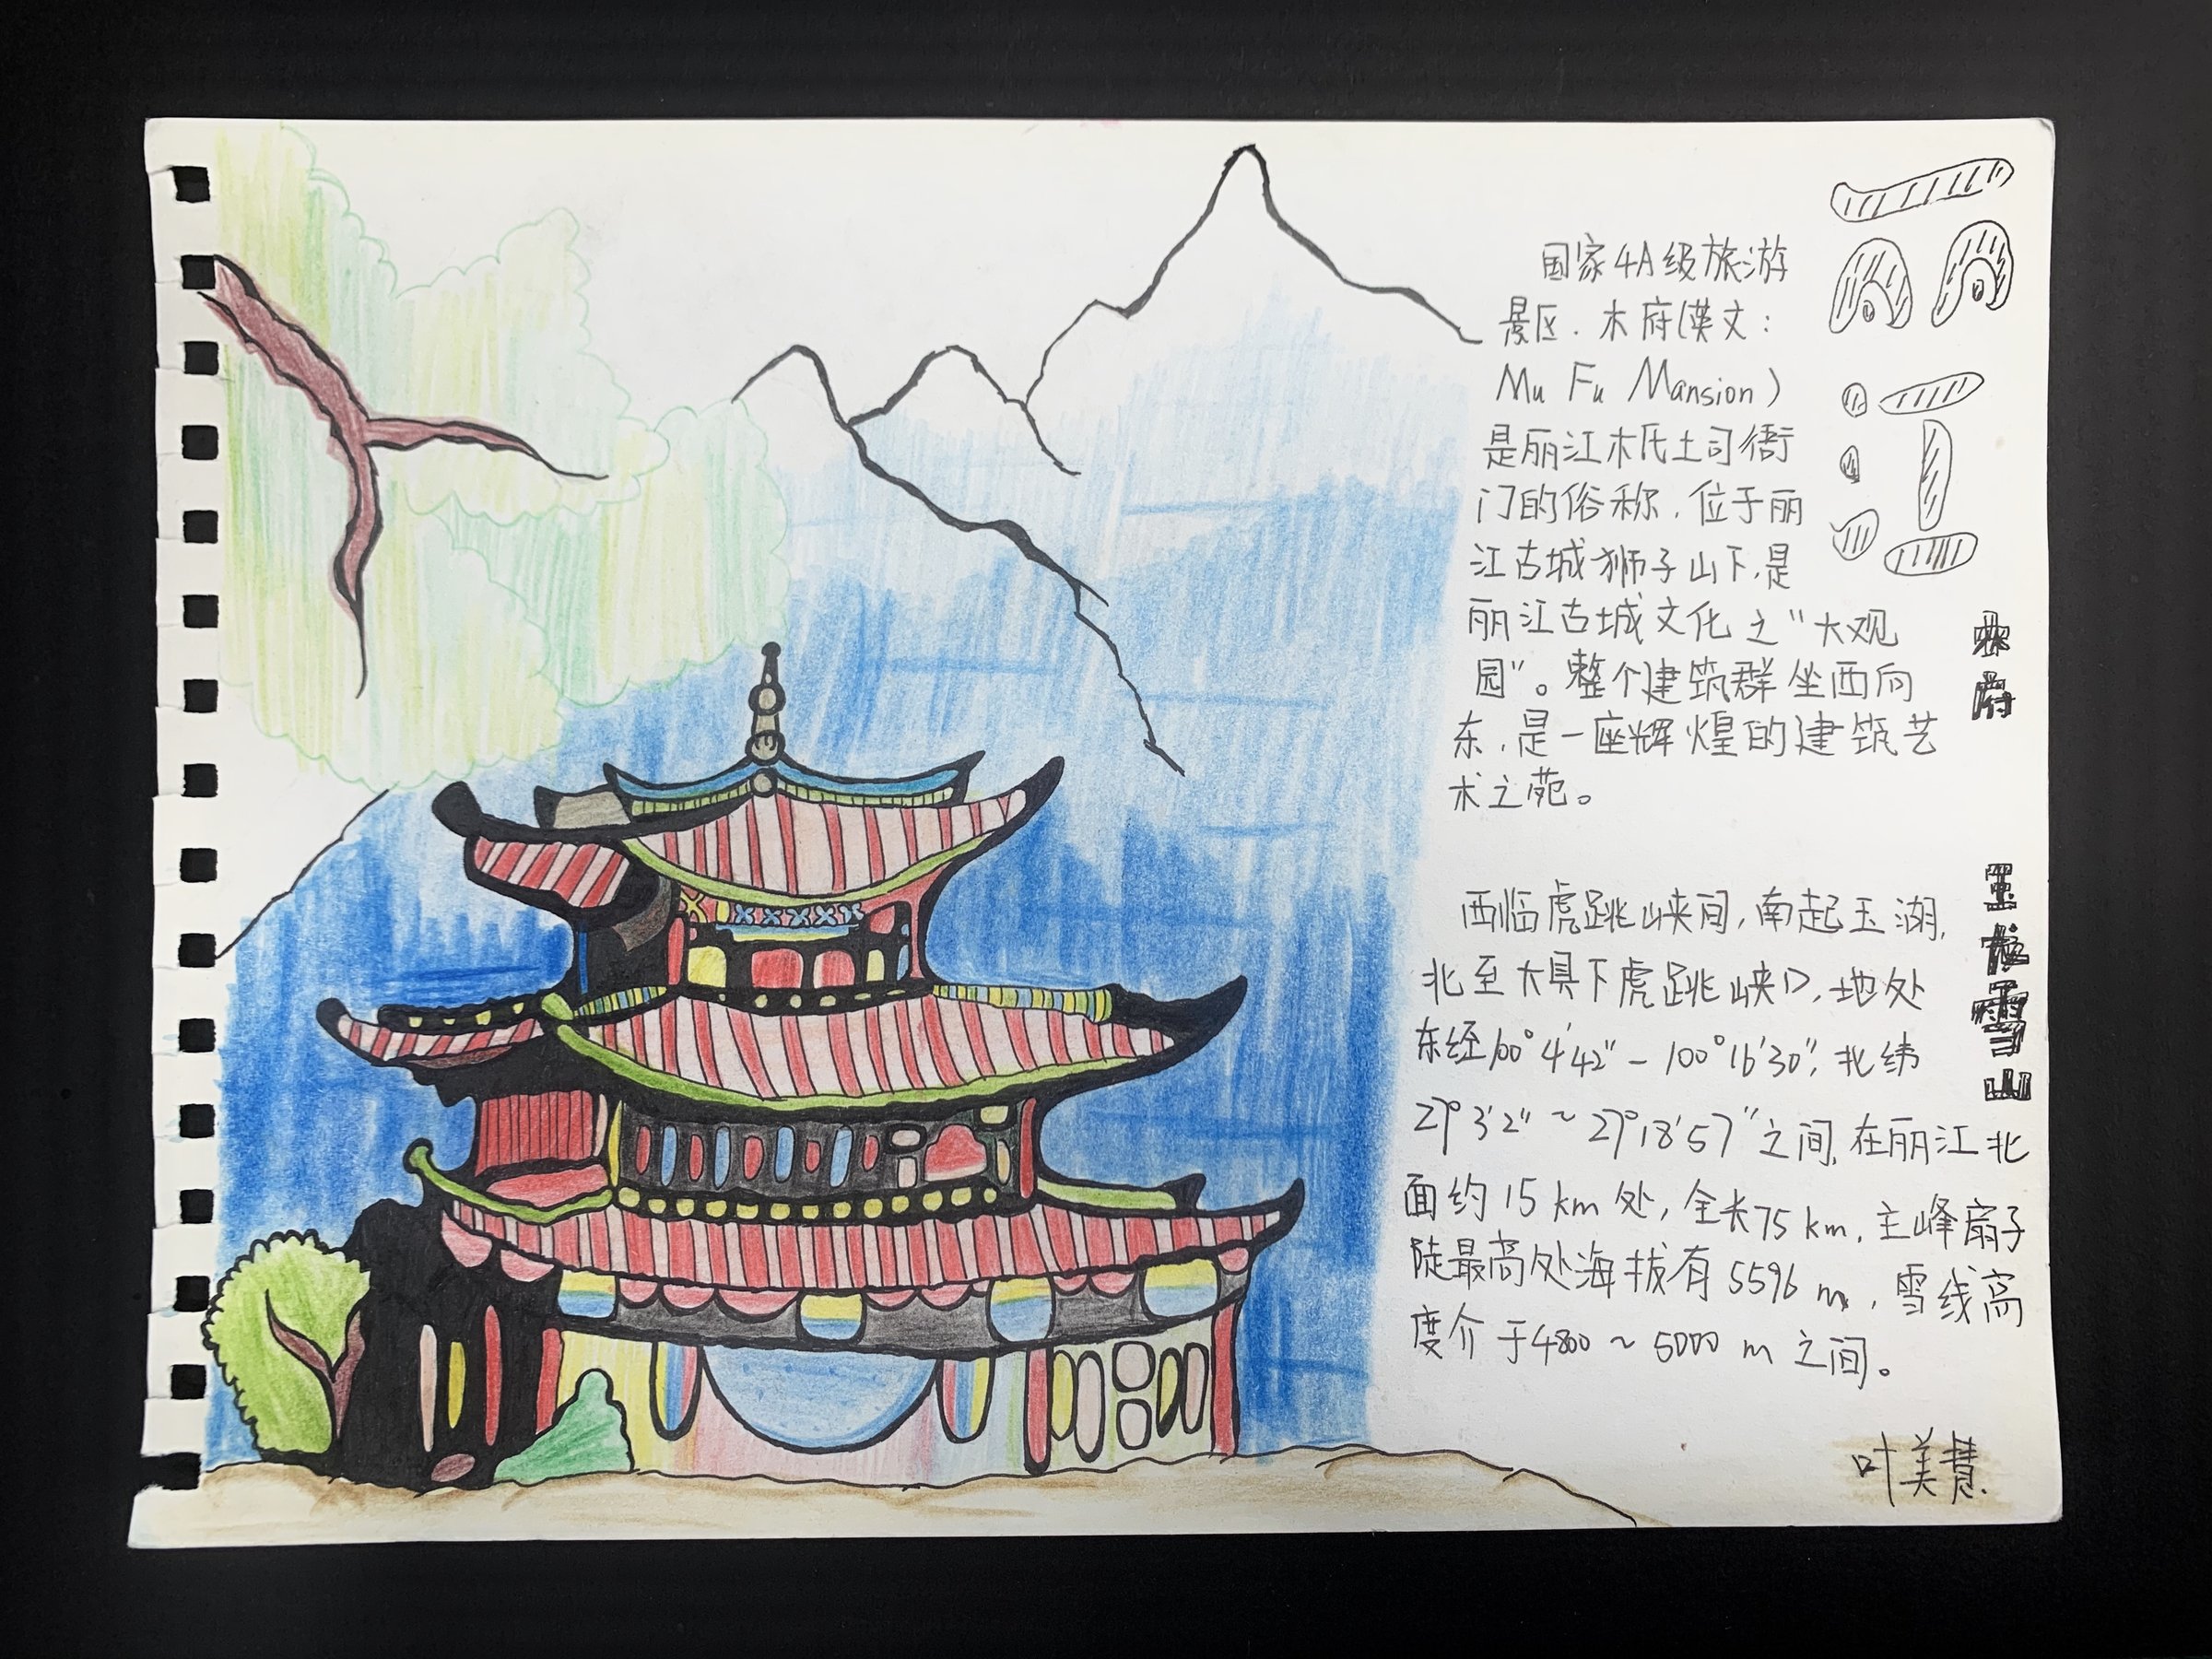 丽江
国家4A级旅游
景区．木府(汉文：
Mu Fu Mansion)
是丽江木氏土司衙
门的俗称，位于丽
江古城狮子山下，是
丽江古城文化之“大观
园”。整个建筑群坐西向
东，是一座辉煌的建筑艺
术之苑。
木府
西临虎跳峡间，南起玉湖，
北至大具下虎跳峡口，地处
东经100°4′42″－100°16′30″，北纬
27°3′2″～27°18′57″之间，在丽江北
面约15km处，全长75km，主峰扇子
陡最高处海拔有5596m，雪线高
度介于4800～5000m之间。
玉龙雪山
叶美慧